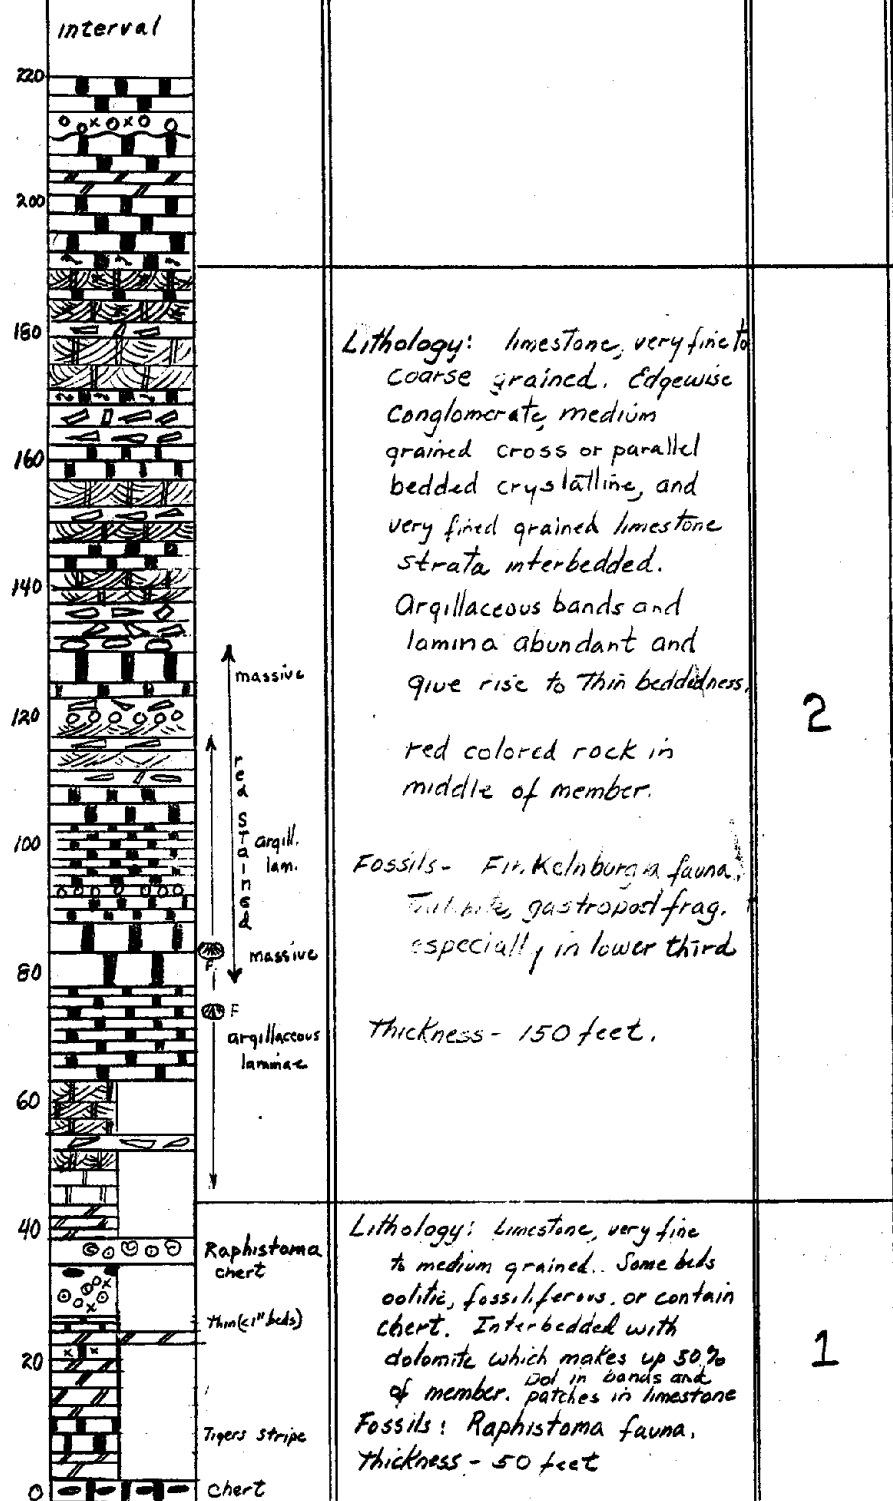 interval
220
200
180
160
140
120
100
80
60
40
20
0
massive
red stained
argill.
lam.
massive
F
F
argillaceous
laminae
Raphistoma
chert
Thin(<1" beds)
Tigers stripe
chert
Lithology: limestone, very fine to
coarse grained. Edgewise
Conglomerate, medium
grained cross or parallel
bedded crystalline, and
very fined grained limestone
strata interbedded.
Argillaceous bands and
lamina abundant and
give rise to Thin beddedness.
red colored rock in
middle of member.
Fossils- Finkelnburgia fauna,
gastropod frag.
especially in lower third
Thickness - 150 feet.
2
Lithology: Limestone, very fine
to medium grained.. Some beds
oolitic, fossiliferous, or contain
chert. Interbedded with
dolomite which makes up 50%
of member. Dol in bands and
patches in limestone
Fossils: Raphistoma fauna.
Thickness - 50 feet
1